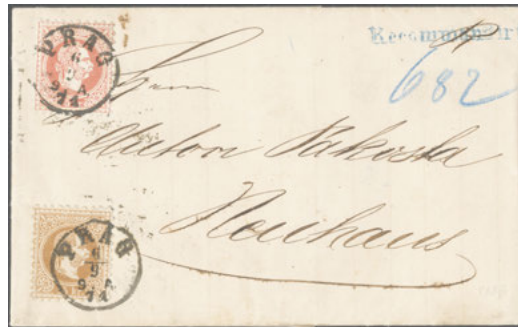 PRAG
6
9
Recommandirt
682
Herrn
Anton Pakosta
Neuhaus
PRAG
6
9